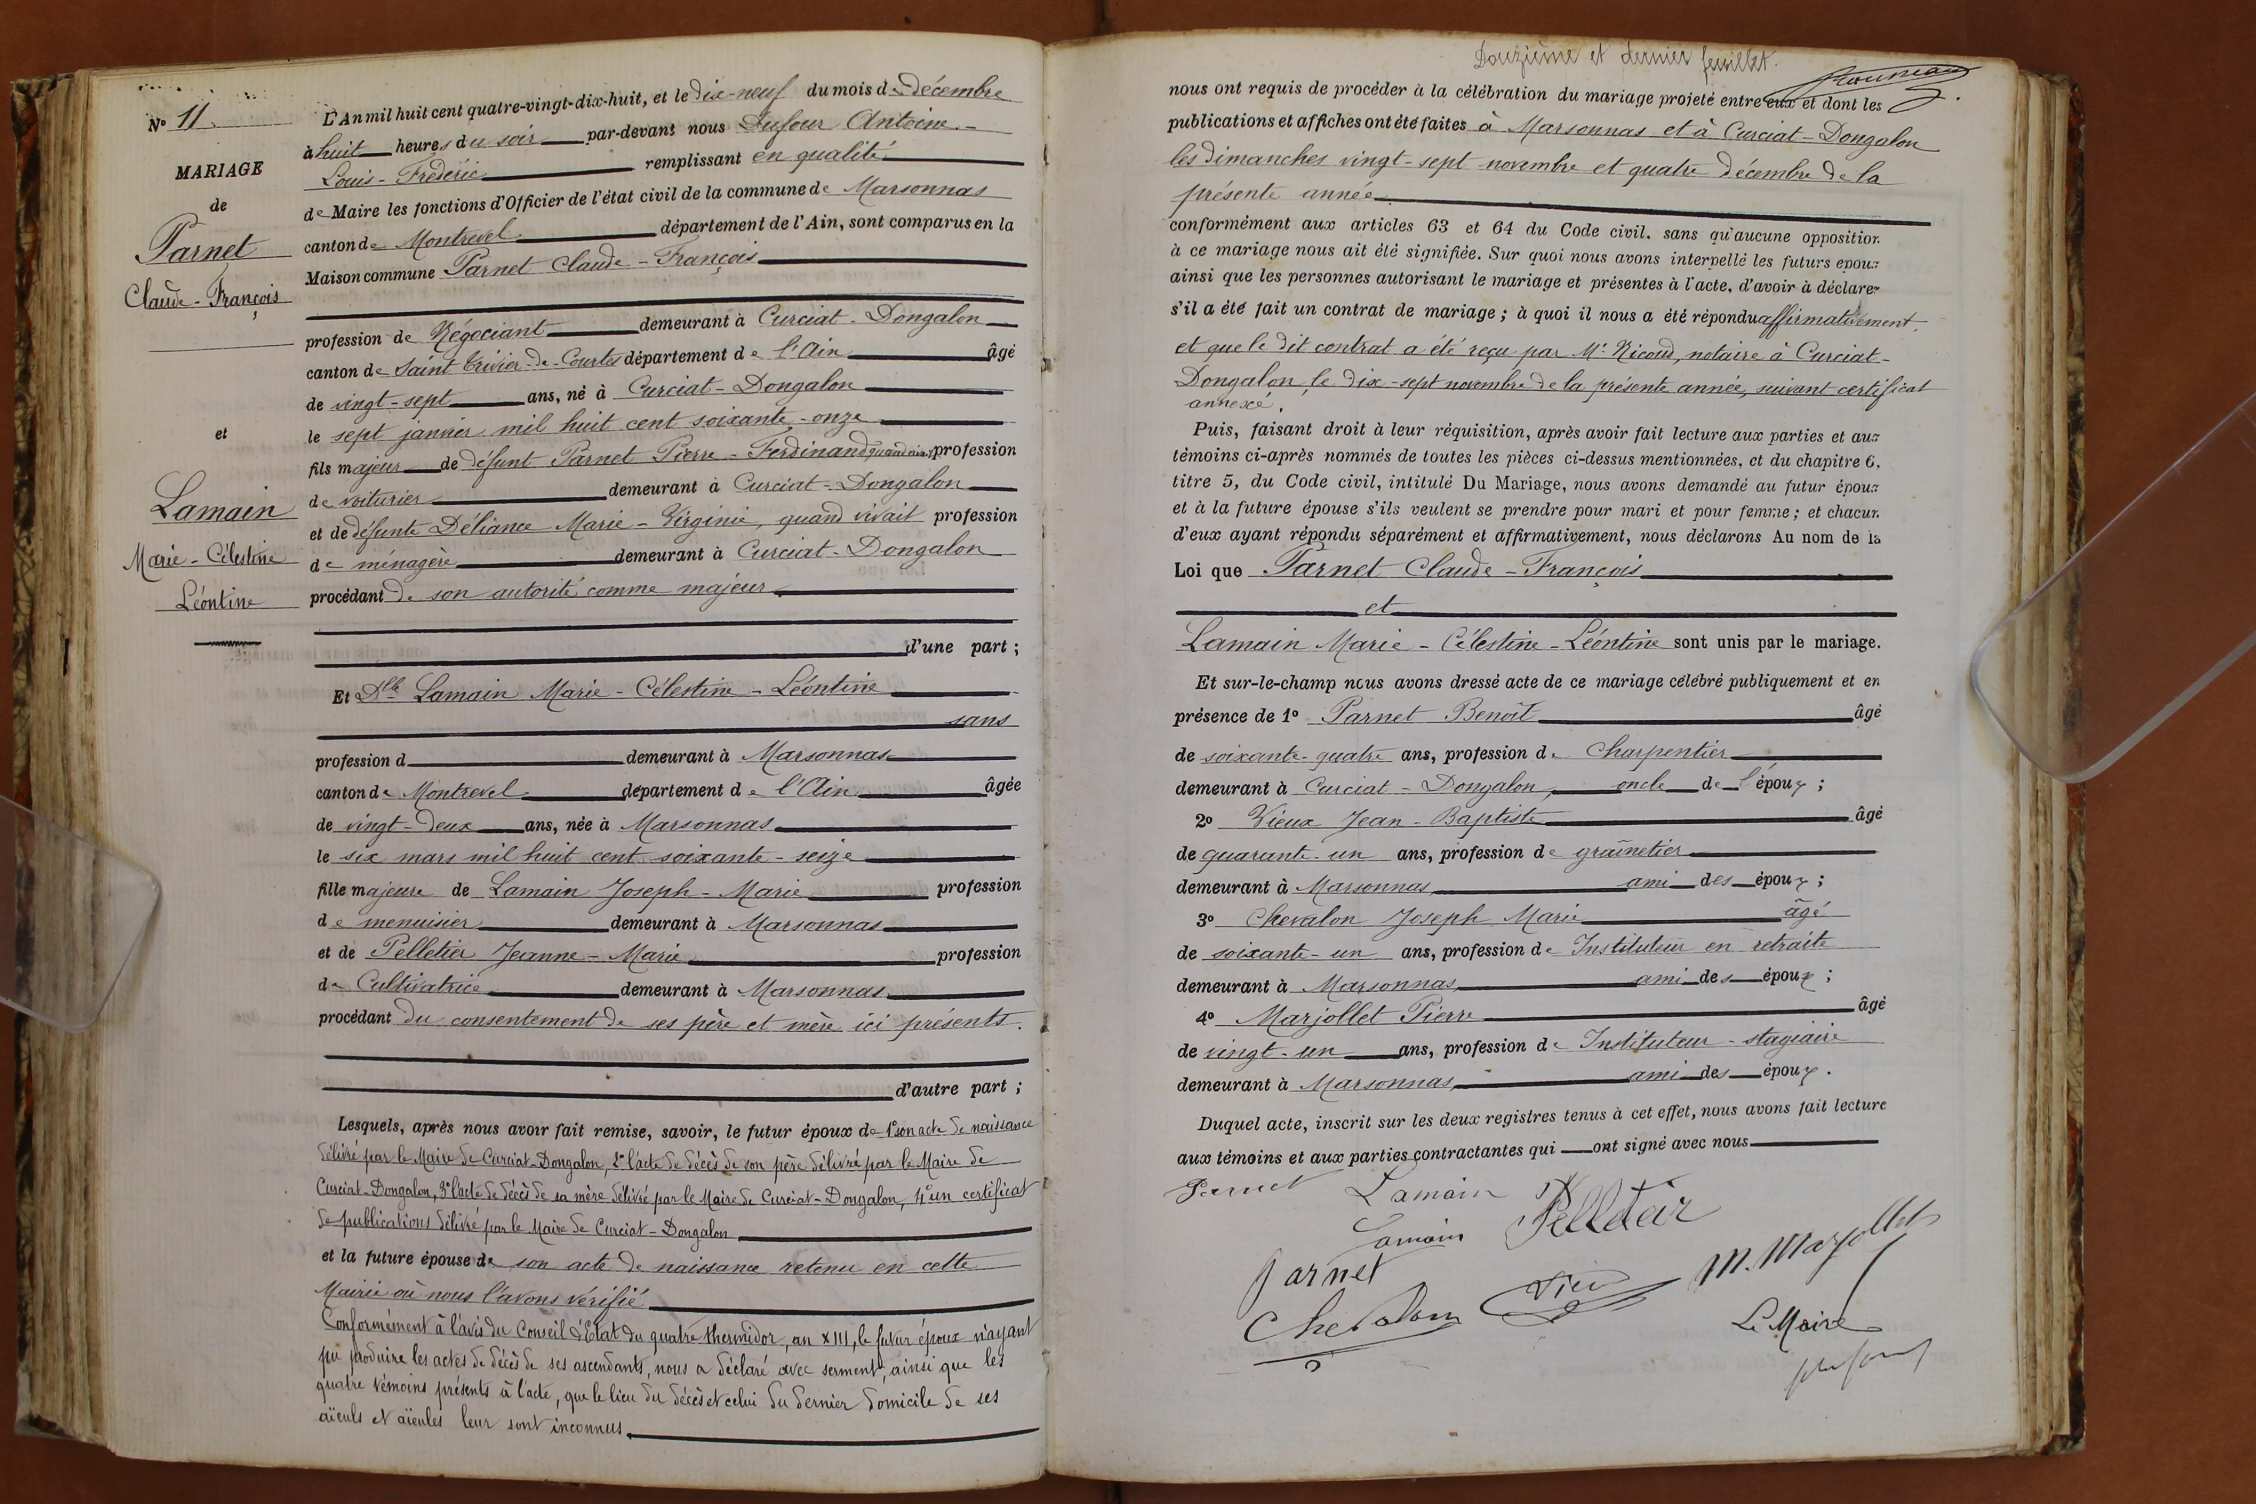 N° 11
MARIAGE
de
Parnet
Claude-François
et
Lamain
Marie-Célestine
Léontine
L'An mil huit cent quatre-vingt-dix-huit, et le dix-neuf du mois de décembre
à huit heures du soir par-devant nous Dufour Antoine-
Louis-Frédéric remplissant en qualité
de Maire les fonctions d'Officier de l'état civil de la commune de Marsonnas
canton de Montrevel département de l'Ain, sont comparus en la
Maison commune Parnet Claude-François
profession de Négociant demeurant à Curciat-Dongalon
canton de Saint Trivier-de-Courtes département de l'Ain âgé
de vingt-sept ans, né à Curciat-Dongalon
le sept janvier mil huit cent soixante-onze
fils majeur de défunt Parnet Pierre-Ferdinand quand vivait profession
de voiturier demeurant à Curciat-Dongalon
et de défunte Déliance Marie-Virginie, quand vivait profession
de ménagère demeurant à Curciat-Dongalon
procédant de son autorité comme majeur
d'une part ;
Et Dlle Lamain Marie-Célestine-Léontine
sans
profession d demeurant à Marsonnas
canton de Montrevel département de l'Ain âgée
de vingt-deux ans, née à Marsonnas
le six mars mil huit cent soixante-seize
fille majeure de Lamain Joseph-Marie profession
de menuisier demeurant à Marsonnas
et de Pelletier Jeanne-Marie profession
de Cultivatrice demeurant à Marsonnas
procédant du consentement de ses père et mère ici présents.
d'autre part ;
Lesquels, après nous avoir fait remise, savoir, le futur époux de 1° son acte de naissance
délivré par le Maire de Curciat-Dongalon, 2° l'acte de décès de son père délivré par le Maire de
Curciat-Dongalon, 3° l'acte de décès de sa mère délivré par le Maire de Curciat-Dongalon, 4° un certificat
de publications délivré par le Maire de Curciat-Dongalon
et la future épouse de son acte de naissance retenu en cette
Mairie où nous l'avons vérifié
Conformément à l'avis du Conseil d'Etat du quatre thermidor, an XIII, le futur époux n'ayant
pu produire les actes de décès de ses ascendants, nous a déclaré avec serment, ainsi que les
quatre témoins présents à l'acte, que le lieu du décès et celui du dernier domicile de ses
aïeuls et aïeules leur sont inconnus
Douzième et dernier feuillet.
nous ont requis de procéder à la célébration du mariage projeté entre eux et dont les
publications et affiches ont été faites à Marsonnas et à Curciat-Dongalon
les dimanches vingt-sept novembre et quatre décembre de la
présente année
conformément aux articles 63 et 64 du Code civil, sans qu'aucune opposition
à ce mariage nous ait été signifiée. Sur quoi nous avons interpellé les futurs époux
ainsi que les personnes autorisant le mariage et présentes à l'acte, d'avoir à déclarer
s'il a été fait un contrat de mariage ; à quoi il nous a été répondu affirmativement
et que le dit contrat a été reçu par Me Nicoud, notaire à Curciat-
Dongalon, le dix-sept novembre de la présente année, suivant certificat
annexé.
Puis, faisant droit à leur réquisition, après avoir fait lecture aux parties et aux
témoins ci-après nommés de toutes les pièces ci-dessus mentionnées, et du chapitre 6,
titre 5, du Code civil, intitulé Du Mariage, nous avons demandé au futur époux
et à la future épouse s'ils veulent se prendre pour mari et pour femme ; et chacun
d'eux ayant répondu séparément et affirmativement, nous déclarons Au nom de la
Loi que Parnet Claude-François
et
Lamain Marie-Célestine-Léontine sont unis par le mariage.
Et sur-le-champ nous avons dressé acte de ce mariage célébré publiquement et en
présence de 1° Parnet Benoît âgé
de soixante-quatre ans, profession de Charpentier
demeurant à Curciat-Dongalon, oncle de l'époux ;
2° Vieux Jean-Baptiste âgé
de quarante-un ans, profession de grainetier
demeurant à Marsonnas ami des époux ;
3° Chevalon Joseph Marie âgé
de soixante-un ans, profession de Instituteur en retraite
demeurant à Marsonnas ami des époux ;
4° Marjollet Pierre âgé
de vingt-un ans, profession de Instituteur-stagiaire
demeurant à Marsonnas ami des époux.
Duquel acte, inscrit sur les deux registres tenus à cet effet, nous avons fait lecture
aux témoins et aux parties contractantes qui ont signé avec nous
Parnet Lamain
Lamain Pelletier
Parnet M. Marjollet
Chevalon
Le Maire
Dufour